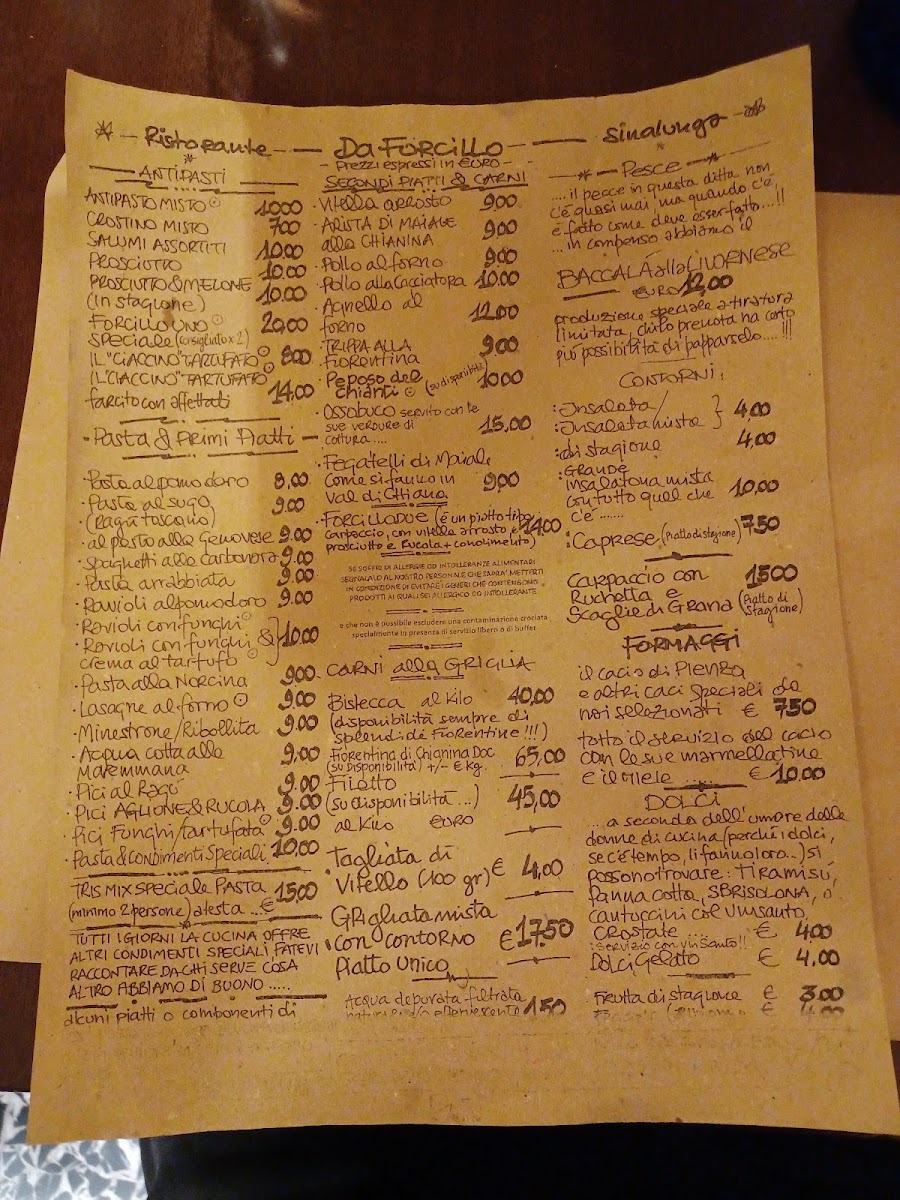 Ristorante — Da Forcillo — Sinalunga
- Prezzi espressi in €uro -
ANTIPASTI
ANTIPASTO MISTO 10.00
CROSTINO MISTO 7.00
SALUMI ASSORTITI 10.00
PROSCIUTTO 10.00
PROSCIUTTO & MELONE
(in stagione) 10.00
FORCILLO UNO
SPECIALE (consigliato x 2) 20,00
IL "CIACCINO" TARTUFATO 8,00
IL "CIACCINO" TARTUFATO
farcito con affettati 14.00
- Pasta & Primi Piatti -
· Pasta al pomodoro 8,00
· Pasta al sugo
(Ragù toscano) 9.00
· al pasto alla Genovese 9.00
· Spaghetti alla Carbonara 9.00
· Pasta arrabbiata 9.00
· Ravioli al pomodoro 9.00
· Ravioli con funghi
· Ravioli con funghi &
crema al tartufo 10.00
· Pasta alla Norcina 9,00
· Lasagne al forno 9.00
· Minestrone/Ribollita 9.00
· Acqua cotta alla
maremmana 9,00
· Pici al Ragù 9.00
· Pici AGLIONE & RUCOLA 9.00
· Pici Funghi/tartufata 9.00
· Pasta & condimenti Speciali 10,00
TRIS MIX SPECIALE PASTA
(minimo 2 persone) a testa ... € 15,00
TUTTI I GIORNI LA CUCINA OFFRE
ALTRI CONDIMENTI SPECIALI, FATEVI
RACCONTARE DA CHI SERVE COSA
ALTRO ABBIAMO DI BUONO .....
alcuni piatti o componenti di
SECONDI PIATTI & CARNI
· Vitella arrosto 9,00
· ARISTA DI MAIALE
alla CHIANINA 9,00
· Pollo al forno 9,00
· Pollo alla Cacciatora 10.00
· Agnello al
forno 12,00
· TRIPPA ALLA
Fiorentina 9,00
· Peposo del
Chianti (su disponibilità) 10.00
· OSSOBUCO servito con le
sue verdure di
cottura .... 15,00
· Fegatelli di Maiale
come si fanno in
Val di Chiana 9,00
· FORCILLO DUE (è un piatto tipo
carpaccio, con vitella arrosto e
prosciutto e Rucola + condimento) 14.00
SE SOFFRI DI ALLERGIE OD INTOLLERANZE ALIMENTARI
SEGNALALO AL NOSTRO PERSONALE CHE SAPRA' METTERTI
IN CONDIZIONE DI EVITARE I GENERI CHE CONTENGONO
PRODOTTI AI QUALI SEI ALLERGICO OD INTOLLERANTE
e che non è possibile escludere una contaminazione crociata
specialmente in presenza di servizio libero o di buffet
CARNI alla GRIGLIA
Bistecca al kilo 40,00
(disponibilità sempre di
splendide Fiorentine !!!)
Fiorentina di Chianina Doc
(SU DISPONIBILITA') +/- € Kg. 65,00
Filetto
(su disponibilità ...) 45,00
al kilo €URO
Tagliata di
Vitello (100 gr) € 4,00
GRIGLIATA mista
con contorno
Piatto Unico € 17.50
Acqua depurata filtrata
naturale o effervescente 1.50
Pesce
.... il pecce in questa ditta non
c'è quasi mai, ma quando c'è
è fatto come deve esser fatto ...!!
... in compenso abbiamo il
BACCALÁ alla LIVORNESE
€URO 12,00
produzione speciale a tiratura
limitata, chi lo prenota ha certo
più possibilità di papparselo .... !!!
CONTORNI:
: Insalata/
: Insalata mista 4,00
: di stagione 4,00
: GRANDE
insalatona mista
con tutto quel che
c'è ....... 10,00
: Caprese (Piatto di stagione) 7.50
Carpaccio con
Ruchetta e
Scaglie di Grana (Piatto di Stagione) 15.00
FORMAGGI
il cacio di Pienza
e altri caci speciali da
noi selezionati € 7.50
tutto il servizio del cacio
con le sue marmellatine
e il miele ..... € 10,00
DOLCI
... a seconda dell'umore delle
donne di cucina (perché i dolci,
se c'è tempo, li fanno loro...) si
possono trovare: TIRAMISÚ,
Panna cotta, SBRISOLONA, o
cantuccini col Vinsanto,
CROSTATE ... € 4,00
: Servizio con Vin Santo !!
DOLCI Gelato € 4,00
Frutta di stagione € 3,00
€ 4,00